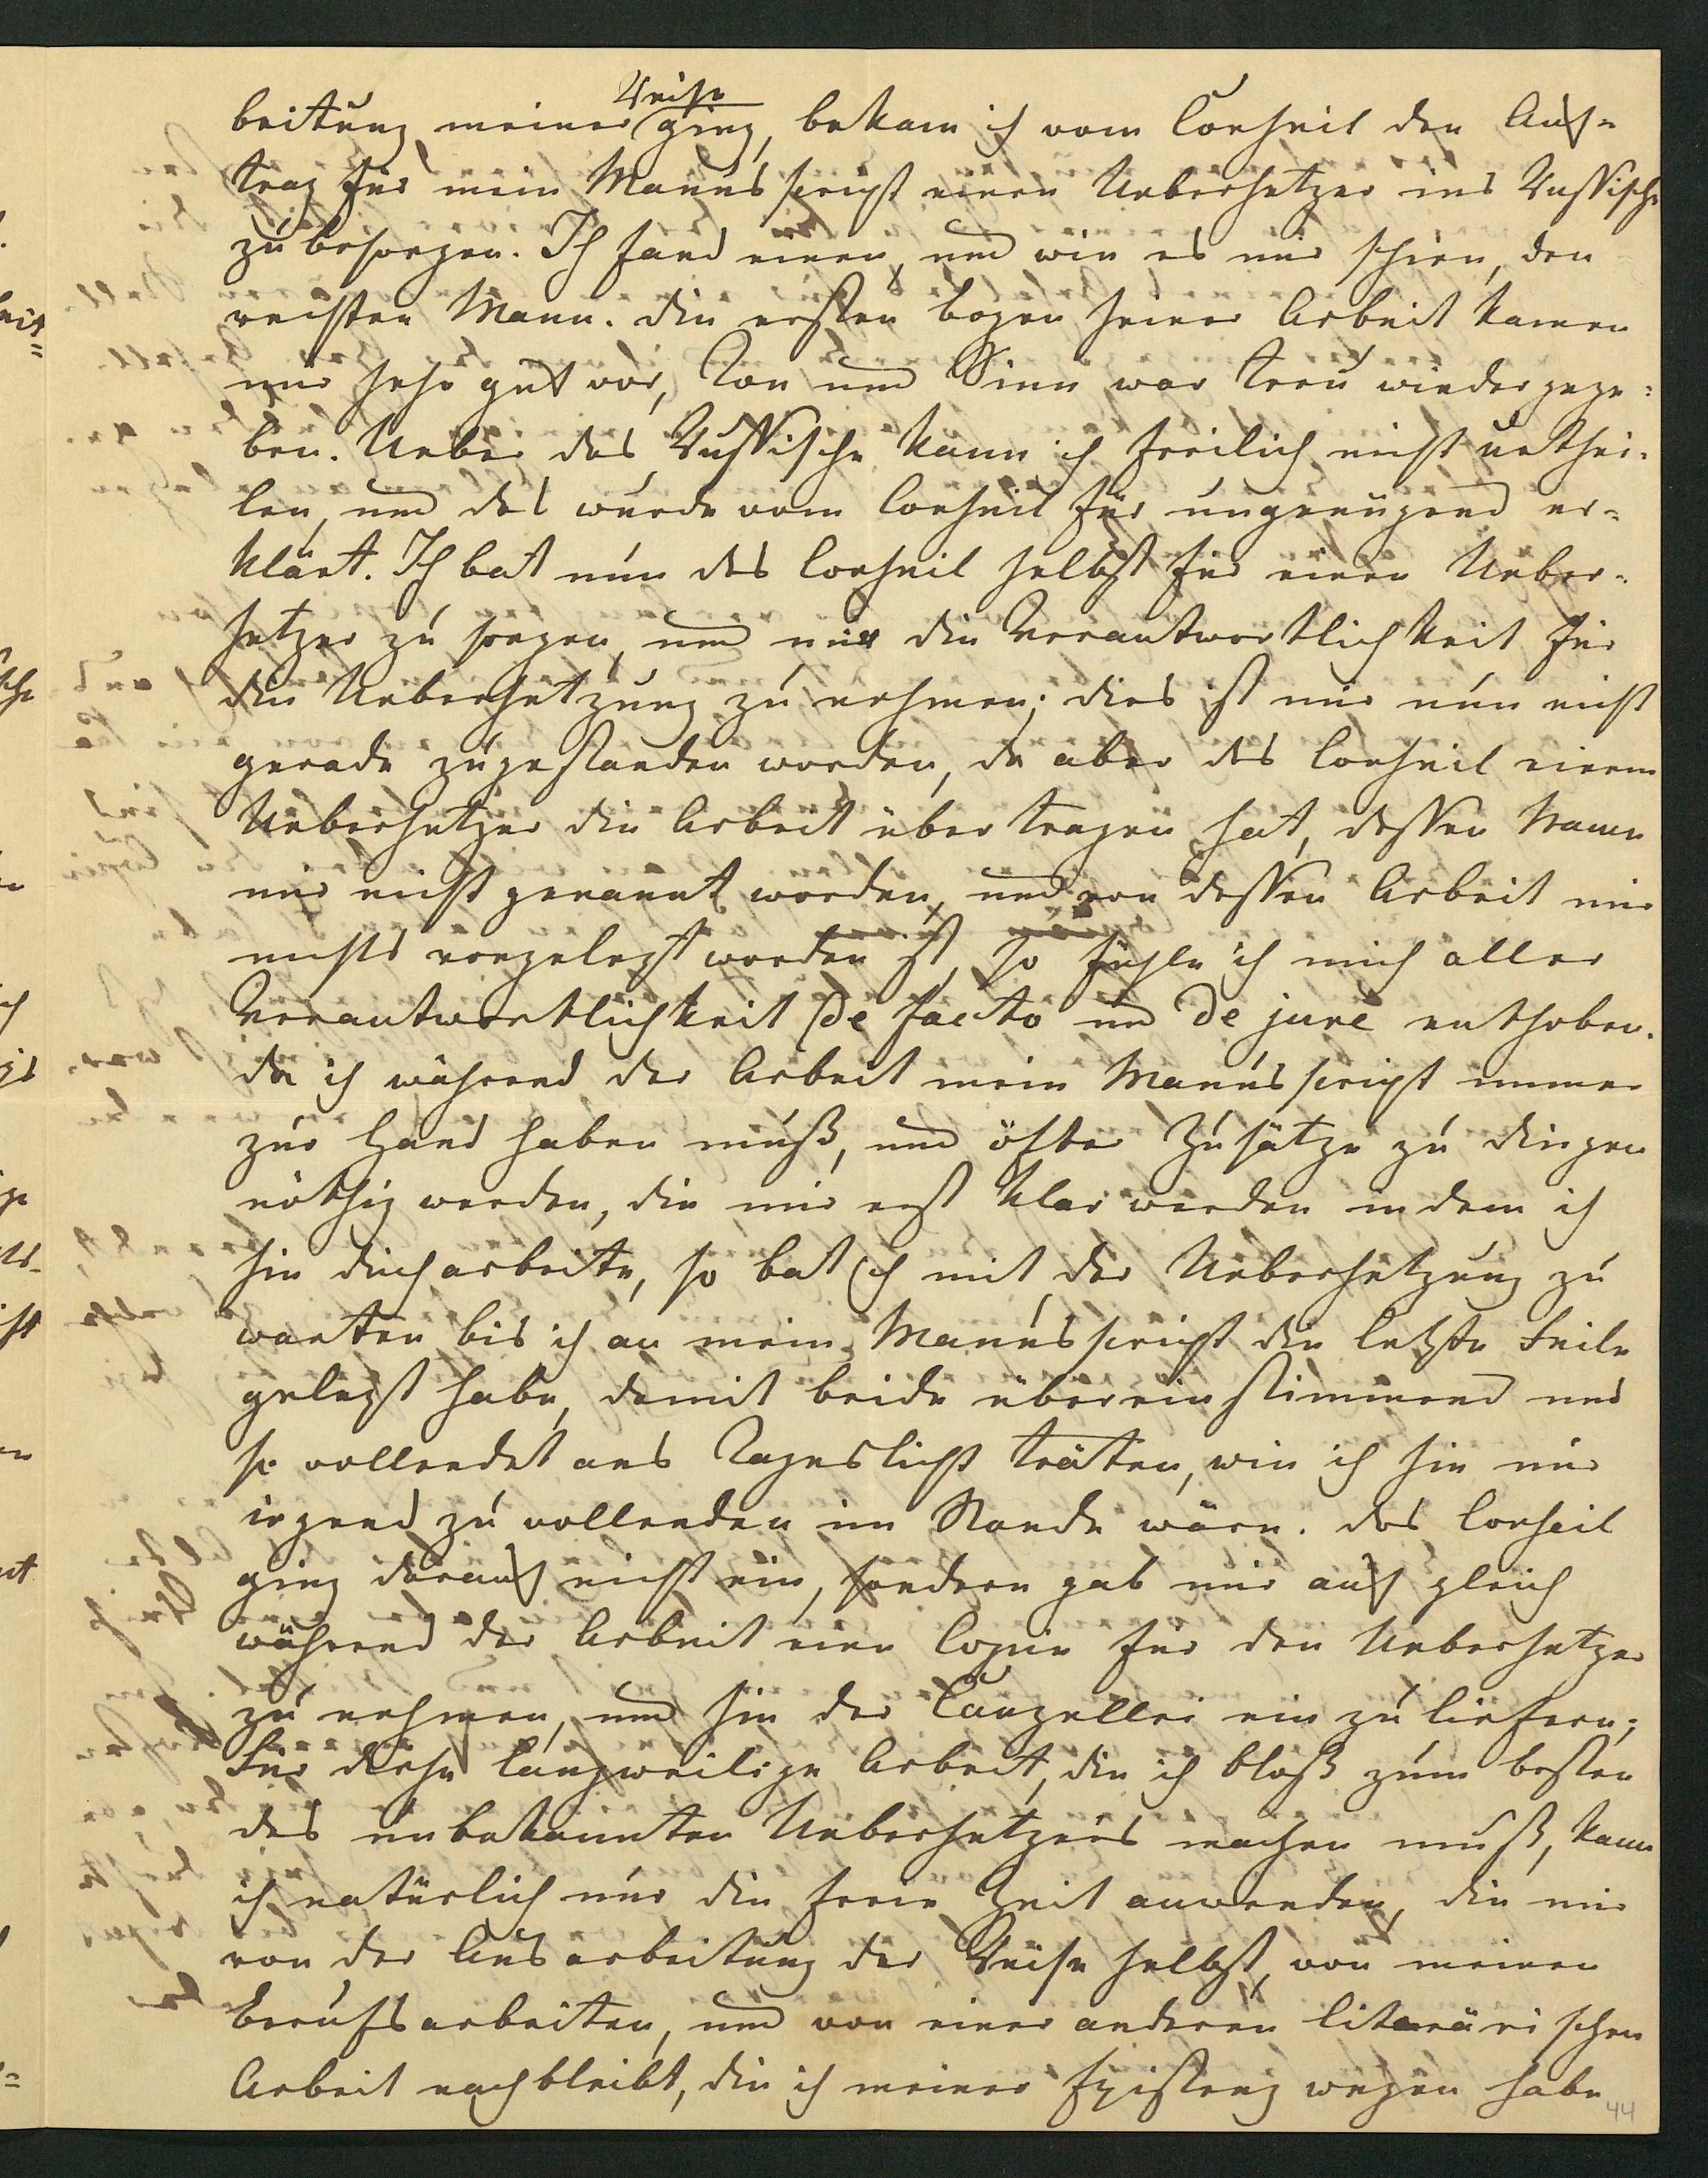 beitung meiner Reise ging, bekam ich vom Conseil den Auf-
trag für mein Manusscript einen Uebersetzer ins Russische
zu besorgen. Ich fand einen, und wie es mir schien, den
rechten Mann. Die ersten Bogen seiner Arbeit kamen
mir sehr gut vor, Ton und Sinn war treu wiedergege-
ben. Ueber das Russische kann ich freilich nicht urthei-
len, und das wurde vom Conseil für ungenügend er-
klärt. Ich bat nun das Conseil selbst für einen Ueber-
setzer zu sorgen, und mir die Verantwortlichkeit für
die Uebersetzung zu nehmen; dies ist mir nun nicht
gerade zugestanden worden, da aber das Conseil einem
Uebersetzer die Arbeit übertragen hat, dessen Name
mir nicht genannt worden, und von dessen Arbeit mir
nichts vorgelegt worden ist, so fühle ich mich aller
Verantwortlichkeit de facto und de jure enthoben.
Da ich während der Arbeit mein Manusscript immer
zur Hand haben muß, und öfter Zusätze zu Dingen
nöthig werden, die mir erst klar werden indem ich
sie durcharbeite, so bat ich mit der Uebersetzung zu
warten bis ich an mein Manusscript die letzte Feile
gelegt habe, damit beide übereinstimmend und
so vollendet ans Tageslicht träten, wie ich sie nur
irgend zu vollenden im Stande wäre. Das Conseil
ging darauf nicht ein, sondern gab mir auf gleich
während der Arbeit eine Copie für den Uebersetzer
zu nehmen, und sie der Canzellei einzuliefern;
Für diese langweilige Arbeit, die ich bloß zum besten
des unbekannten Uebersetzers machen muß, kann
ich natürlich nur die freie Zeit anwenden, die mir
von der Ausarbeitung der Reise selbst, von meinen
Berufsarbeiten, und von einer anderen literärischen
Arbeit nachbleibt, die ich meiner Existenz wegen habe
44